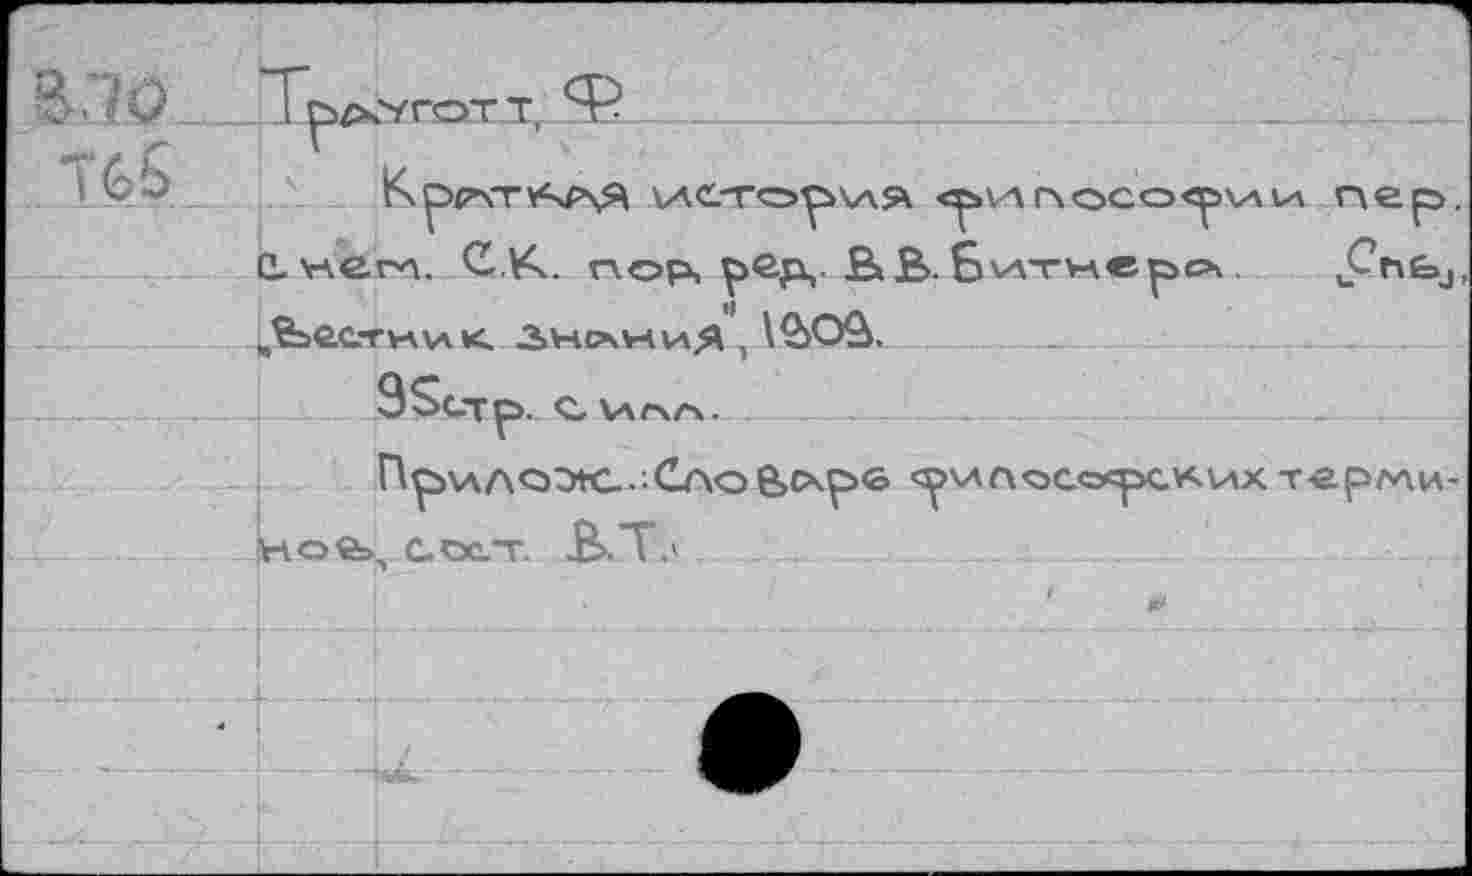 8.70 Трауготт, Ф.
Т65
Краткая история философии пер.
с нем. С.К. под ред. В.В. Битнера. [Спб],
„Вестник Знания", 1909.
95стр. с илл.
Прилож.: Словарь философских терми-
нов, сост. В.Т.